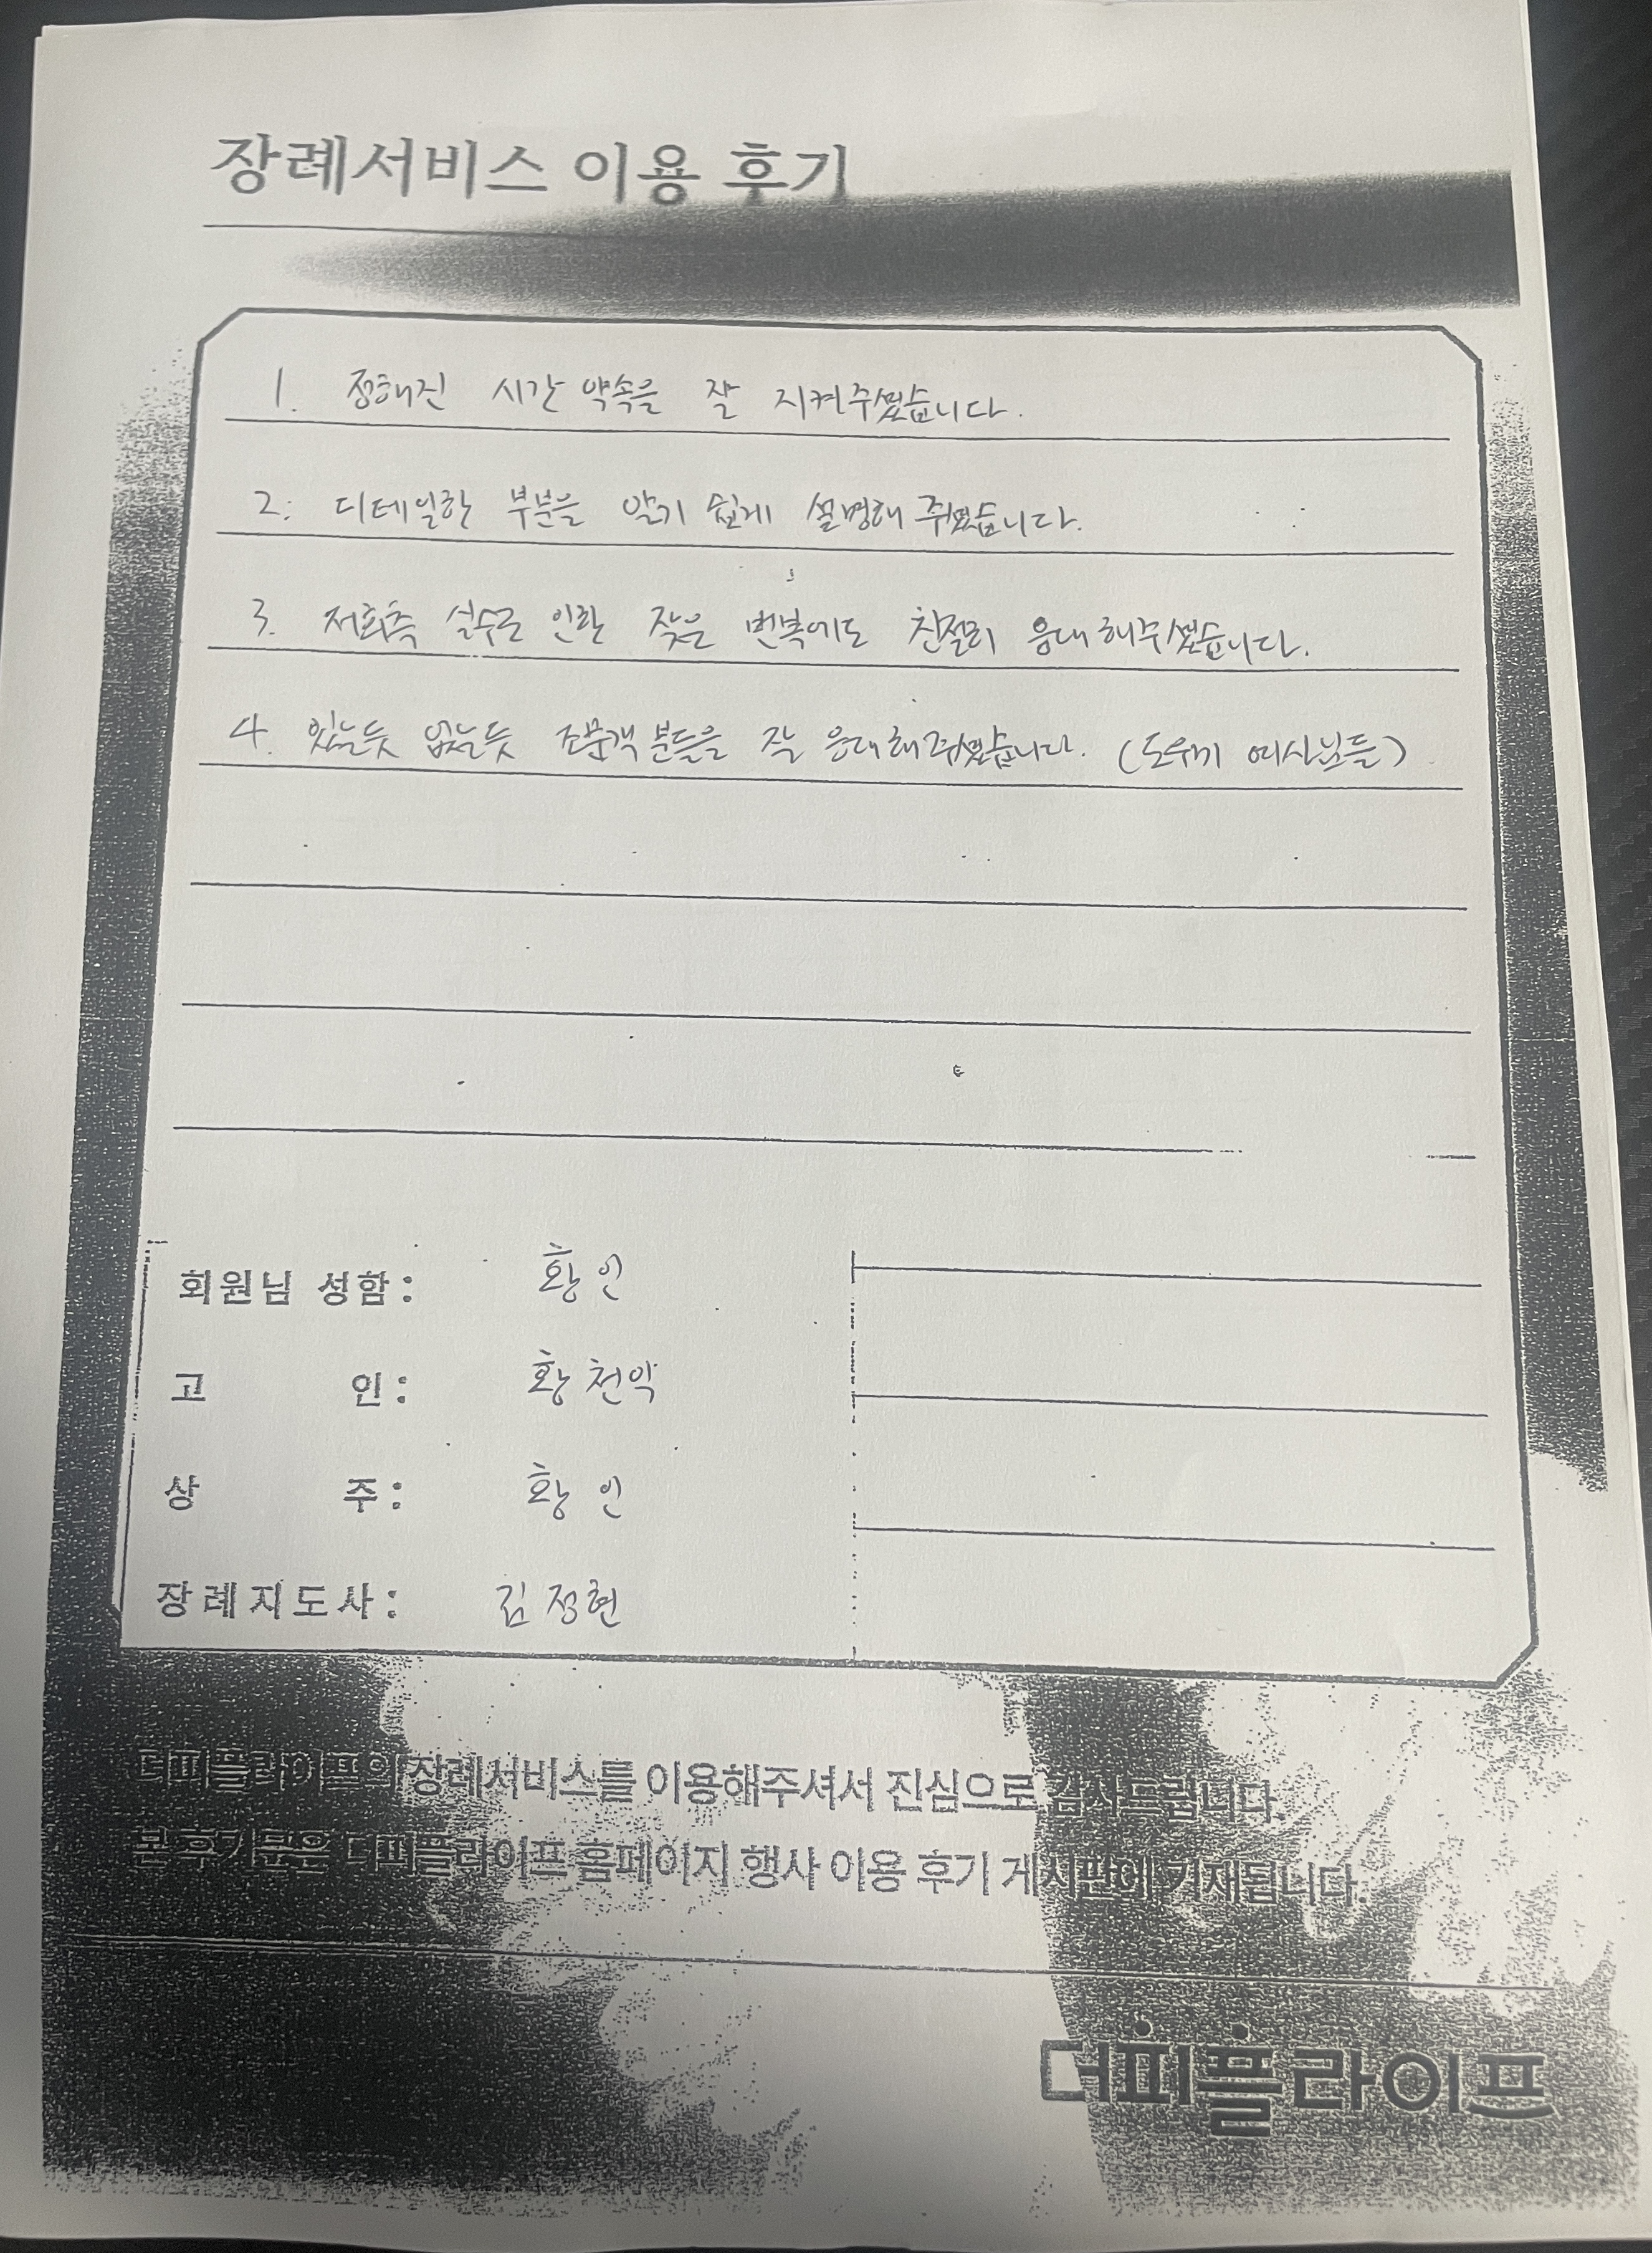 장례서비스 이용 후기
1. 정해진 시간 약속을 잘 지켜주셨습니다.
2. 디테일한 부분을 알기 쉽게 설명해 주셨습니다.
3. 저희측 실수로 인한 잦은 번복에도 친절히 응대해주셨습니다.
4. 있는듯 없는듯 조문객 분들을 잘 응대해주셨습니다. (도우미 여사님들)
회원님 성함 : 황인
고 인 : 황천익
상 주 : 황인
장례지도사 : 김정현
더피플라이프의 장례서비스를 이용해주셔서 진심으로 감사드립니다.
본 후기문은 더피플라이프 홈페이지 행사 이용 후기 게시판에 기재됩니다.
더피플라이프